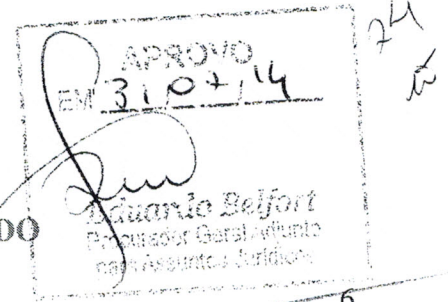 74
APROVO
EM 31/07/14
Eduardo Belfort
Procurador Geral Adjunto
para Assuntos Jurídicos
DO
6